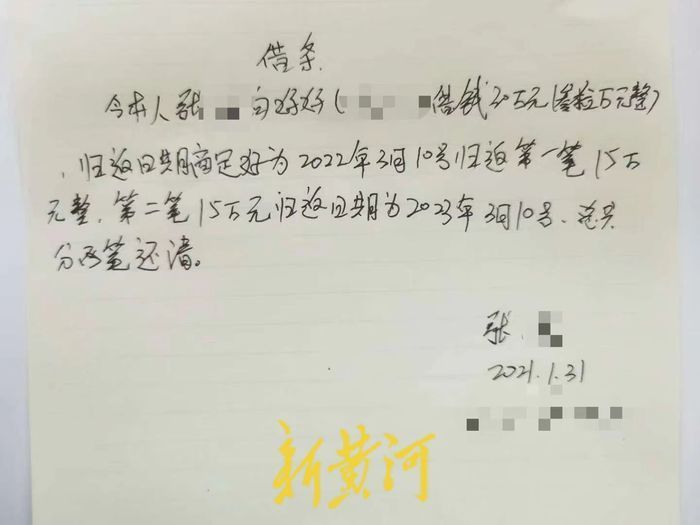 借条
今本人张 向好好( 借钱30万元(叁拾万元整)
，归返日期商定好为2022年3月10号归返第一笔15万
元整，第二笔15万元归返日期为2023年3月10号、总共
分两笔还清。
张
2021.1.31
新黄河